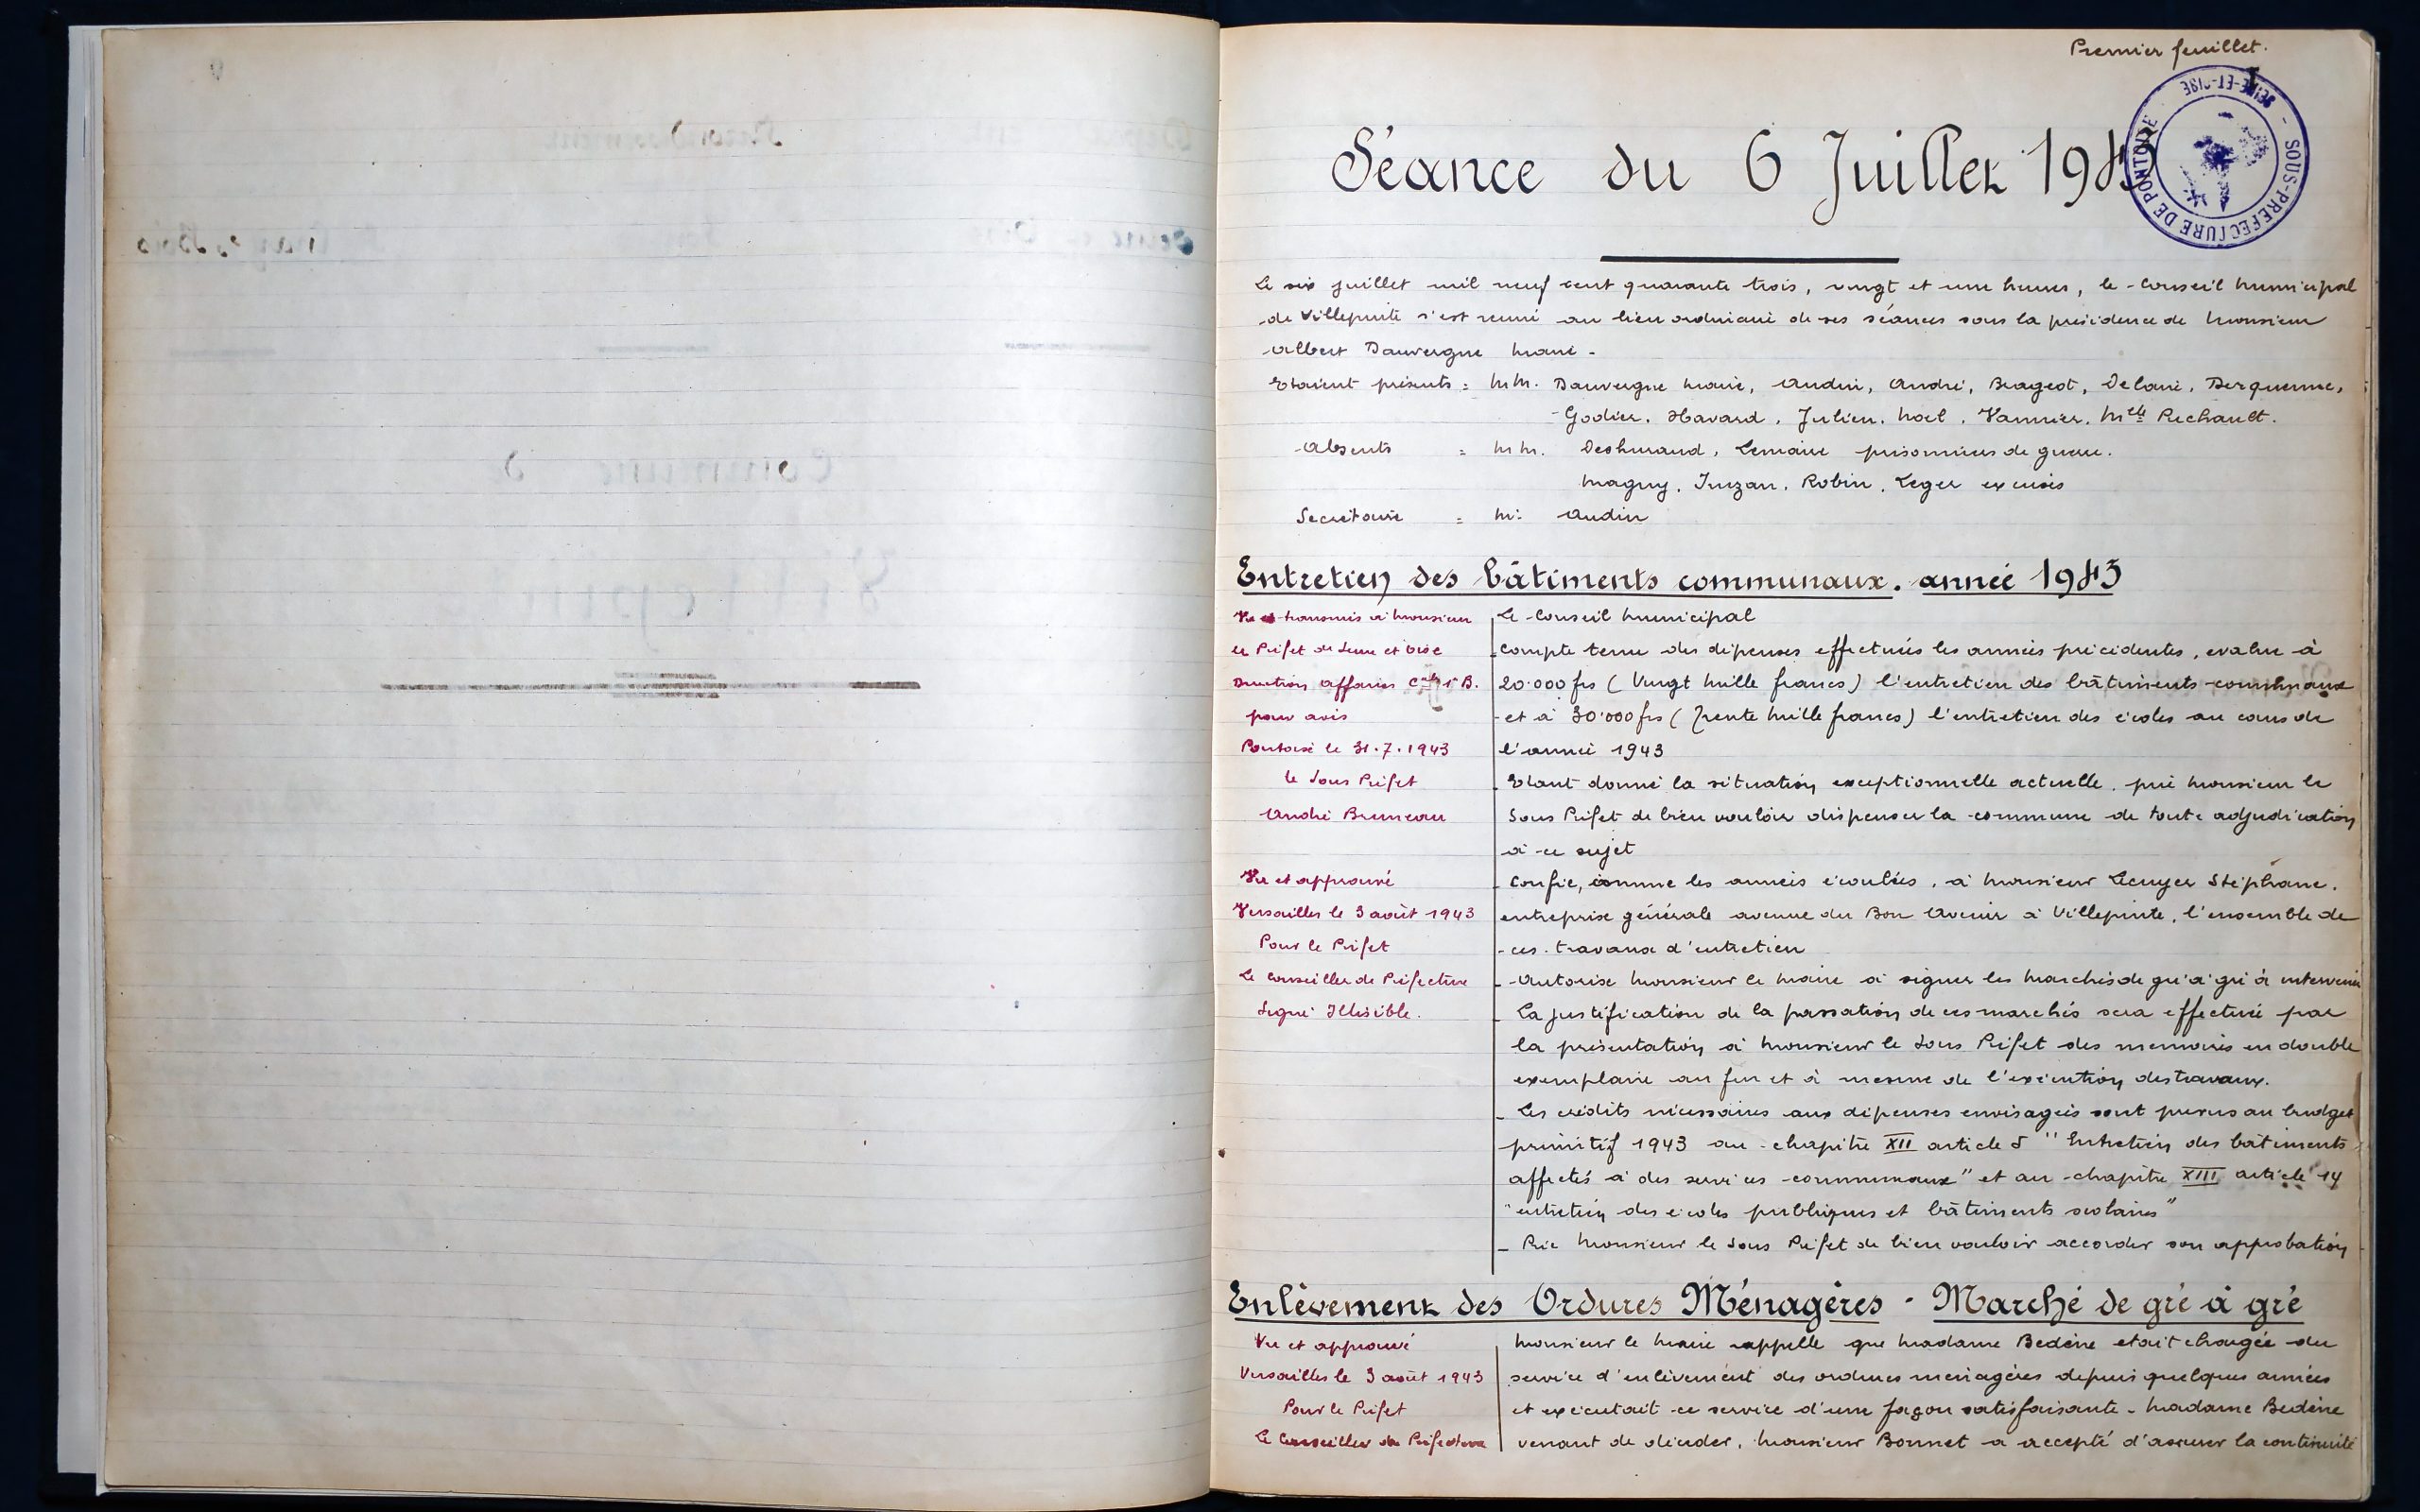 Premier feuillet.
1
SOUS-PREFECTURE DE PONTOISE - SEINE-ET-OISE
Séance du 6 Juillet 1943
Le six juillet mil neuf cent quarante trois, vingt et une heures, le Conseil Municipal
de Villepinte s'est réuni au lieu ordinaire de ses séances sous la présidence de Monsieur
Albert Dauvergne Maire.
Etaient présents = MM. Dauvergne Maire, Audin, André, Brageot, Delarie, Derquenne,
Godier, Havard, Julien, Noel, Vannier, Melle Rechault.
Absents = MM. Deshmaud, Lemaire prisonniers de guerre.
Magny, Inizan, Robin, Leger excusés
Secrétaire = M. Audin
Entretien des bâtiments communaux. année 1943
Vu et transmis à Monsieur
le Préfet de Seine et Oise
Direction affaires Cales 1er B.
pour avis
Pontoise le 31.7.1943
le Sous Préfet
André Bruneau
Vu et approuvé
Versailles le 3 août 1943
Pour le Préfet
Le Conseiller de Préfecture
Signé Illisible.
Le Conseil Municipal
- Compte tenu des dépenses effectuées les années précédentes, évalue à
20.000 frs (Vingt Mille francs) l'entretien des bâtiments communaux
et à 30.000 frs (Trente Mille francs) l'entretien des écoles au cours de
l'année 1943
- Etant donné la situation exceptionnelle actuelle, prie Monsieur le
Sous Préfet de bien vouloir dispenser la commune de toute adjudication
à ce sujet
- Confie, comme les années écoulées, à Monsieur Lecuyer Stéphane,
entreprise générale avenue du Bon Avenir à Villepinte, l'ensemble de
ces travaux d'entretien
- Autorise Monsieur le Maire à signer les Marchés de gré à gré à intervenir
- La justification de la passation de ces marchés sera effectuée par
la présentation à Monsieur le Sous Préfet des mémoires en double
exemplaire au fur et à mesure de l'exécution des travaux.
- Les crédits nécessaires aux dépenses envisagées sont prévus au budget
primitif 1943 au chapitre XII article 5 "Entretien des bâtiments
affectés à des services communaux" et au chapitre XIII article 14
"entretien des écoles publiques et bâtiments scolaires"
- Prie Monsieur le Sous Préfet de bien vouloir accorder son approbation
Enlèvement des Ordures Ménagères - Marché de gré à gré
Vu et approuvé
Versailles le 3 août 1943
Pour le Préfet
Le Conseiller de Préfecture
Monsieur le Maire rappelle que Madame Bedène etait chargée du
service d'enlèvement des ordures ménagères depuis quelques années
et exécutait ce service d'une façon satisfaisante - Madame Bedène
venant de décéder, Monsieur Bonnet a accepté d'assurer la continuité